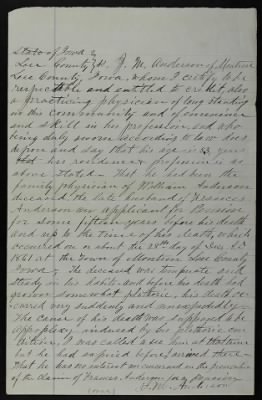 State of Iowa
Lee County } ss. J. M. Anderson of Montrose
Lee County, Iowa, whom I certify to be
respectable and entitled to credit, also
a practicing physician of long standing
in this community and of eminence
and skill in his profession, and who
being duly sworn according to law does
depose and say that his age is 53 years
his residence & profession is as
above stated. That he had been the
family physician of William Anderson
deceased, the late husband of Frances
Anderson an applicant for Pension
for some fifteen years before his death
and up to the time of his death, which
occurred on or about the 28th day of Dec. A.D.
1861 at the Town of Montrose Lee County
Iowa. The deceased was temperate and
steady in his habits and before his death had
grown somewhat plethoric, his death oc-
curred very suddenly and unexpectedly.
The cause of his death was supposed to be
Appoplexy induced by his plethoric con-
dition, I was called to see him at that time
but he had expired before I arrived there.
That he has no interest or concern in the prosecution
of the claim of Frances Anderson for a pension
J. M. Anderson